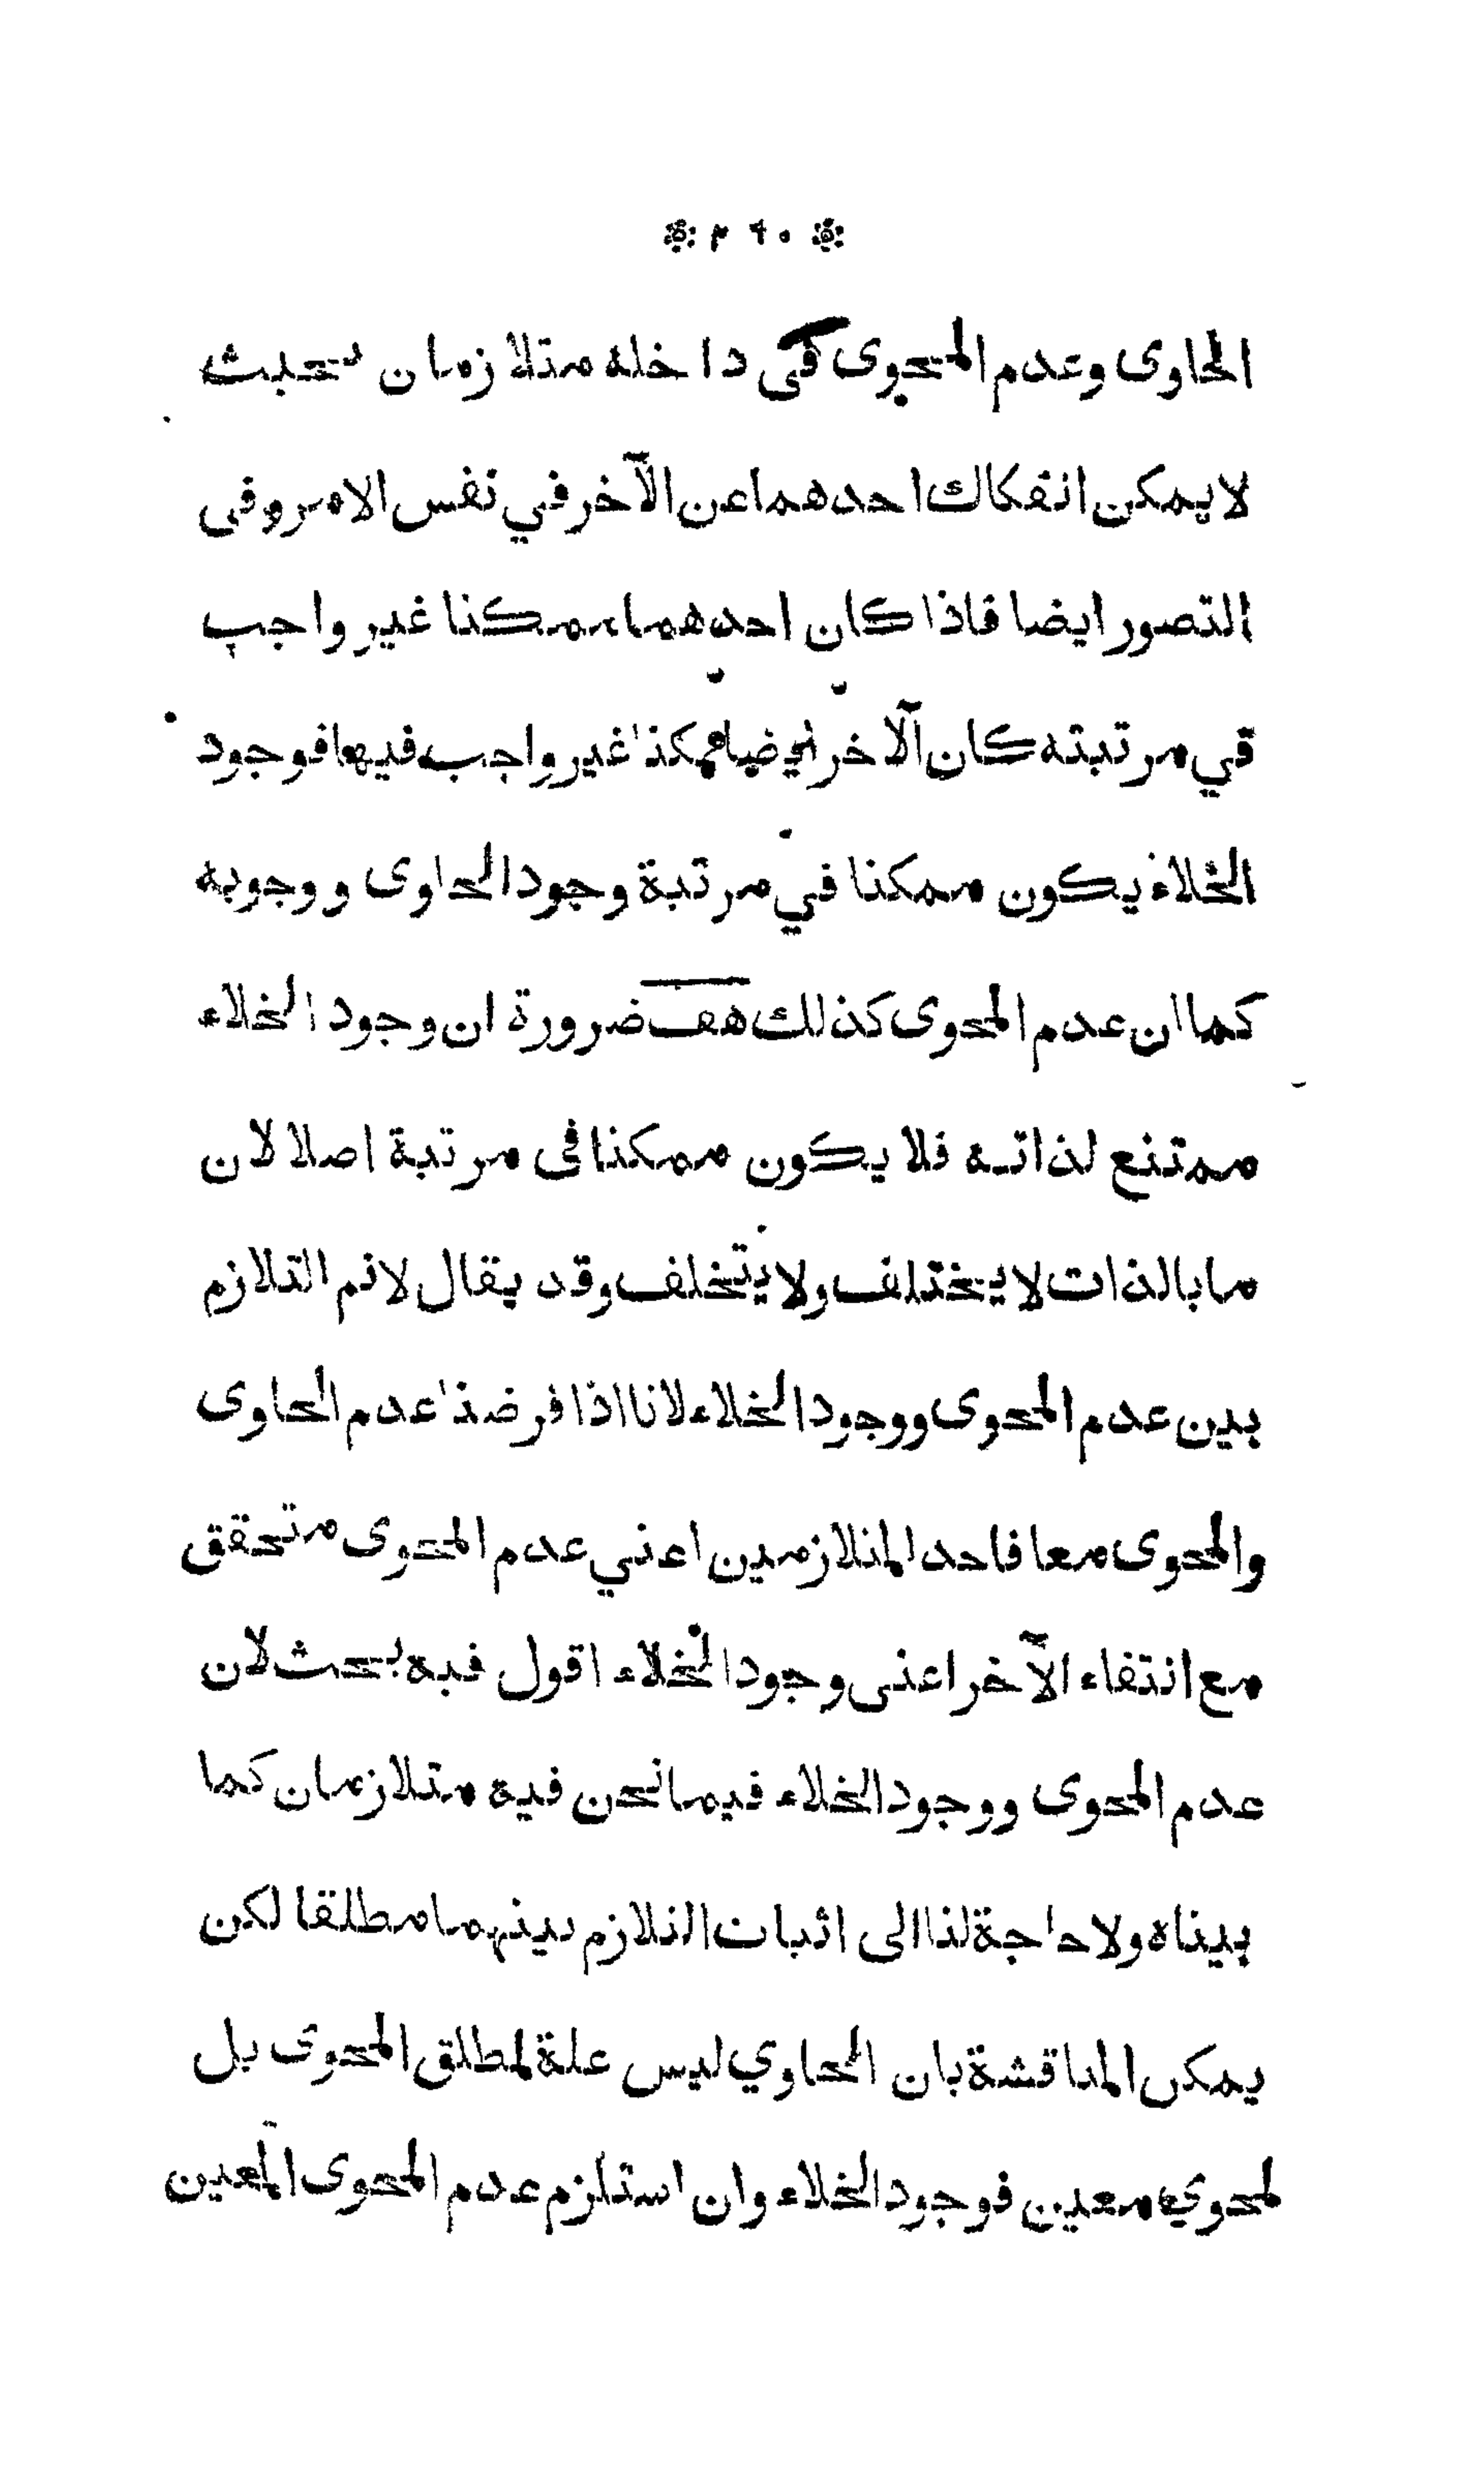 ۲۹۰
الحاوى وعدم المحوى فى داخله متلازمان بحيث
لا يمكن انفكاك احدهما عن الآخر في نفس الامر وفى
التصور ايضا فاذا كان احدهما ممكنا غير واجب
في مرتبته كان الآخر ايضا ممكنا غير واجب فيها فوجود
الخلاء يكون ممكنا في مرتبة وجود الحاوى ووجوبه
كما ان عدم المحوى كذلك هف ضرورة ان وجود الخلاء
ممتنع لذاته فلا يكون ممكنا فى مرتبة اصلا لان
ما بالذات لا يختلف ولا يتخلف وقد يقال لانم التلازم
بين عدم المحوى ووجود الخلاء لانا اذا فرضنا عدم الحاوى
والمحوى معا فاحد المتلازمين اعني عدم المحوى متحقق
مع انتفاء الآخر اعنى وجود الخلاء اقول فيه بحث لان
عدم المحوى ووجود الخلاء فيما نحن فيه متلازمان كما
بيناه ولا حاجة لنا الى اثبات التلازم بينهما مطلقا لكن
يمكن المناقشة بان الحاوي ليس علة لمطلق المحوى بل
لمحوي معين فوجود الخلاء وان استلزم عدم المحوى المعين